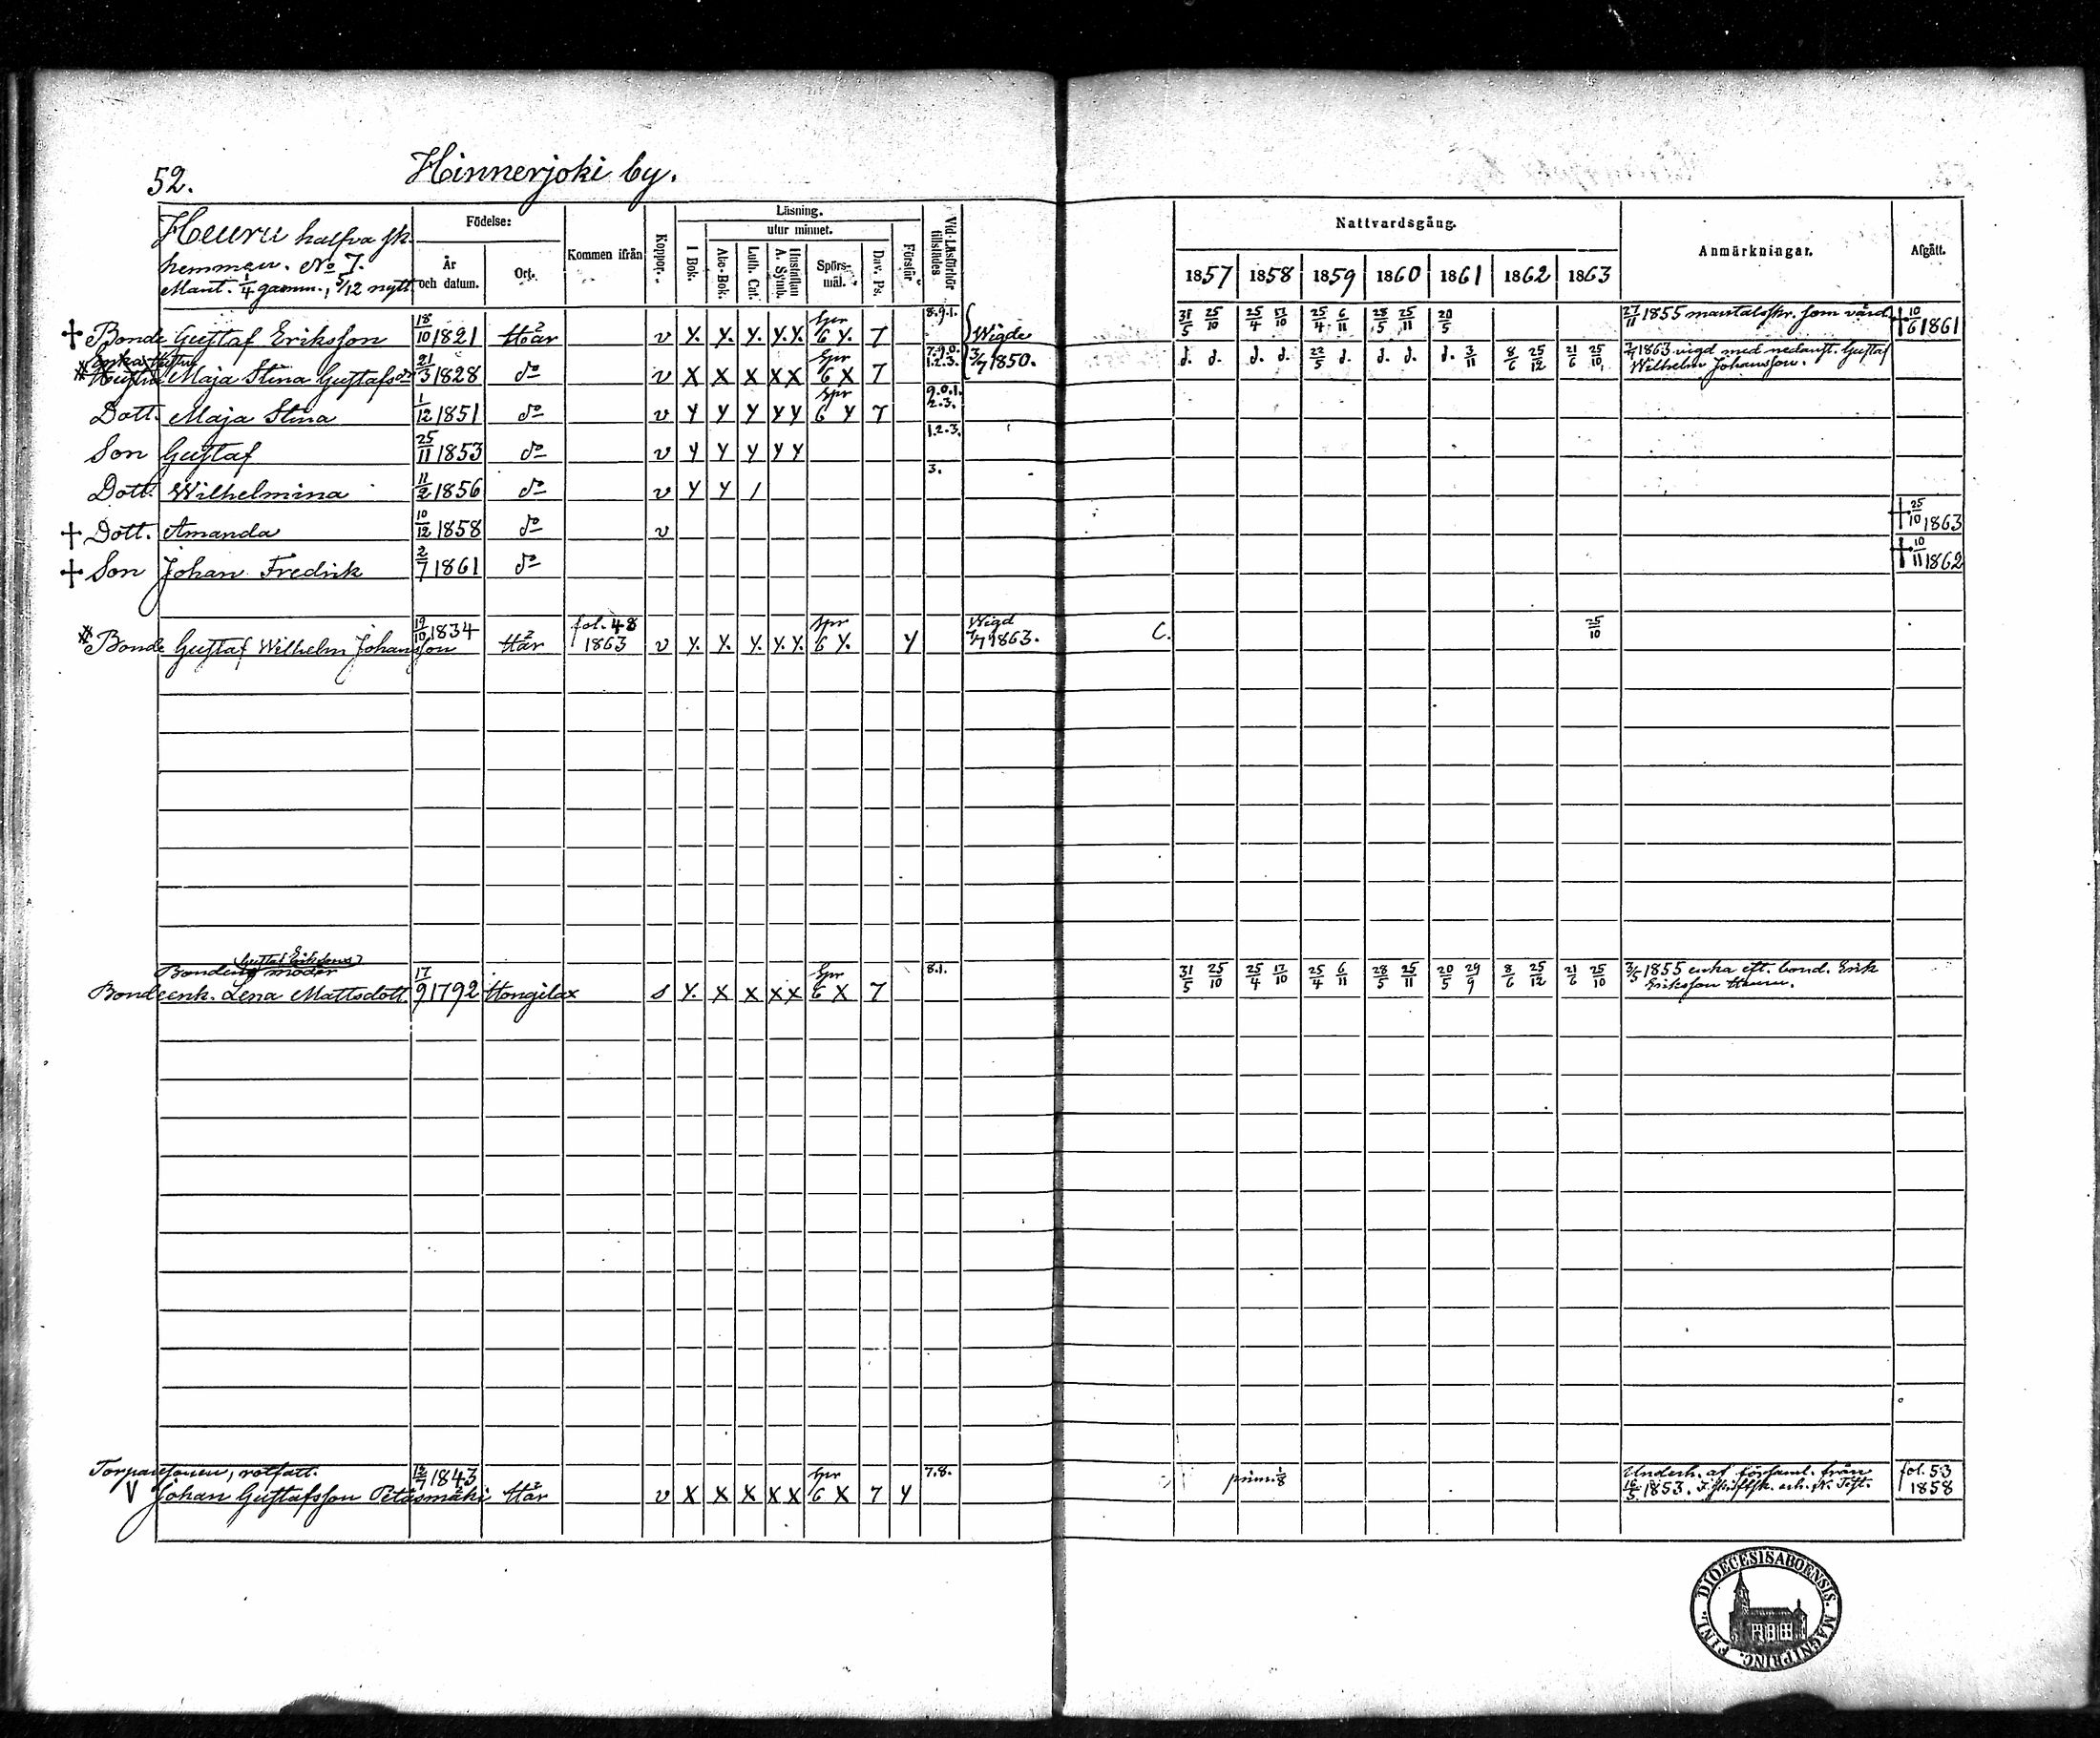 52.
Hinnerjoki by.
Heuru halfva sk.
hemman. No 7.
Mant. 1/4 gamm., 5/12 nytt.
Födelse:
År och datum.
Ort.
Kommen ifrån
Koppor.
Läsning.
I Bok.
utur minnet.
Abc-Bok.
Luth. Cat.
Hustaflan A. Symb.
Spörsmål.
Dav. Ps.
Förstår
Vid Läsförhör tillstädes
Nattvardsgång.
1857 1858 1859 1860 1861 1862 1863
Anmärkningar.
Afgått.
† Bonde Gustaf Eriksson 18/10 1821 Här v Y. Y. Y. Y. Y. Spr 6 Y. 7 8.9.1. Wigde 31/5 25/10 25/4 17/10 25/4 6/11 28/5 25/11 20/5 27/11 1855 mantalsskr. som värd. † 10/6 1861
Enka Hustru
Hustru Maja Stina Gustafsdr 21/3 1828 do v X X X X X Spr 6 X 7 7.9.0. 1.2.3. 3/7 1850. d. d. d. d. 22/5 d. d. d. d. 3/11 8/6 25/12 21/6 25/10 7/7 1863 vigd med nedanst. Gustaf
Wilhelm Johansson.
Dott. Maja Stina 1/12 1851 do v Y Y Y Y Y Spr 6 Y 7 9.0.1. 2.3.
Son Gustaf 25/11 1853 do v Y Y Y Y Y 1.2.3.
Dott. Wilhelmina 11/2 1856 do v Y Y / 3.
† Dott. Amanda 10/12 1858 do v † 25/10 1863
† Son Johan Fredrik 2/7 1861 do † 10/11 1862
Bonde Gustaf Wilhelm Johansson 19/10 1834 Här fol. 48 1863 v Y. Y. Y. Y. Y. Spr 6 Y. Y Wigd 7/7 1863. C. 25/10
Bonden Gustaf Erikssons moder
Bondeenk. Lena Mattsdott. 17/9 1792 Hongilax s Y. X X X X Spr 6 X 7 8.1. 31/5 25/10 25/4 17/10 25/4 6/11 28/5 25/11 20/5 29/9 8/6 25/12 21/6 25/10 3/5 1855 enka eft. bond. Erik
Eriksson Heuru.
Torparsonen, rotfatt.
V Johan Gustafsson Petäsmäki 12/7 1843 Här v X X X X X Spr 6 X 7 Y 7.8. prim. 1/8 Underh. af församl. från
16/5 1853. fol. 53 1858
DIOECESIS ABOENSIS. MAGNI PRINC. FINL.